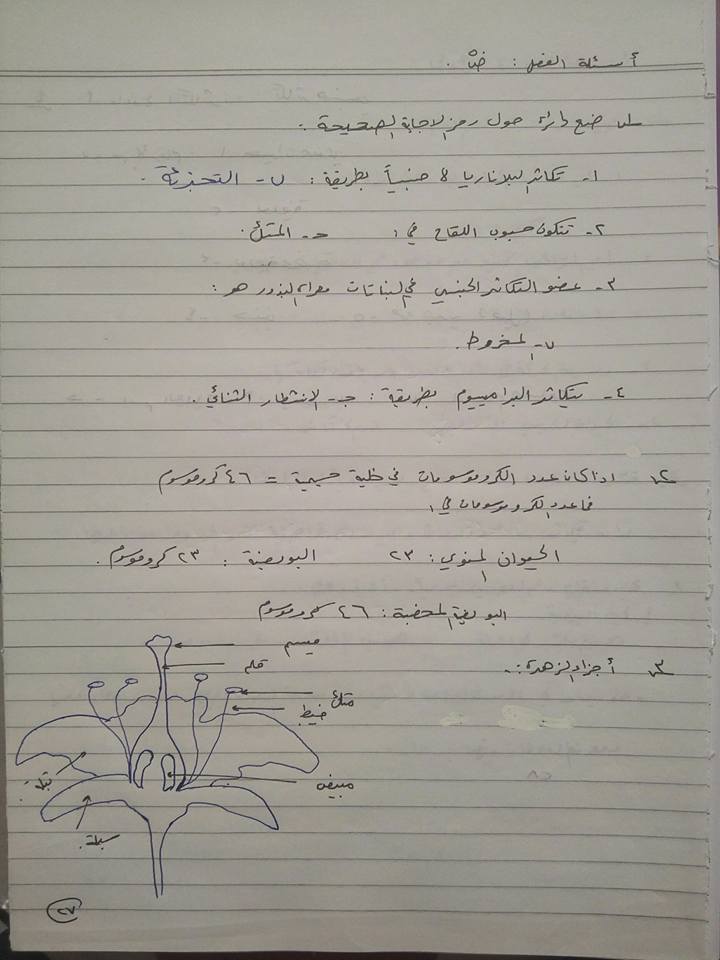 أسئلة الفصل : ص
س١ ضع دائرة حول رمز الاجابة الصحيحة :
١- تتكاثر البلاناريا لا جنسياً بطريقة : ب- التجزئة .
٢- تتكون حبوب اللقاح في : د- المتك .
٣- عضو التكاثر الجنسي في النباتات معراة البذور هو :
ب- المخروط .
٤- يتكاثر البراميسيوم بطريقة : جـ- الانشطار الثنائي .
س٢ اذا كان عدد الكروموسومات في خلية جسمية = ٤٦ كروموسوم
فما عدد الكروموسومات في :
الحيوان المنوي : ٢٣ البويضة : ٢٣ كروموسوم .
البويضة المخصبة : ٤٦ كروموسوم
س٣ أجزاء الزهرة :
ميسم
قلم
متك
خيط
مبيض
بتلة
سبلة
٢٧